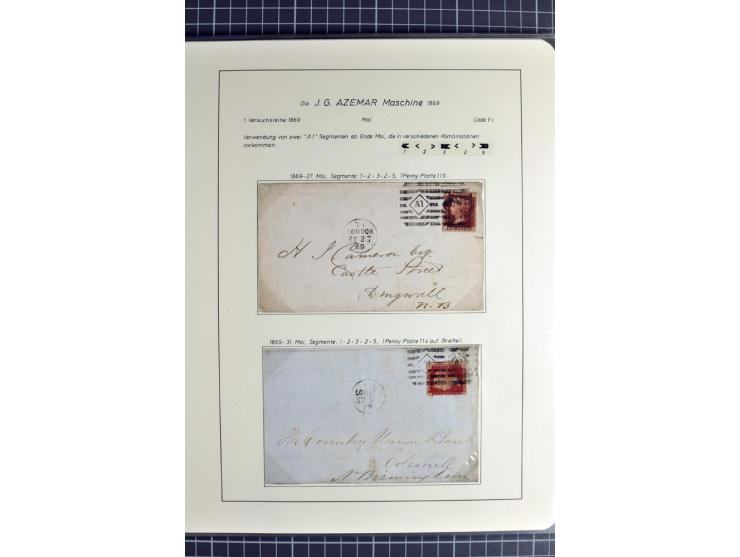 Die J. G. AZEMAR Maschine 1869
1. Versuchsreihe 1869 Mai Code Y i
Verwendung von zwei "A1" Segmenten ab Ende Mai, die in verschiedenen Kombinationen
vorkommen.
1 2 3 2 5
1869-27. Mai, Segmente: 1-2-3-2-5, 1 Penny Platte 119.
A1
LONDON
MY 27
69
H J Cameron Esq.
Castle Street
Dingwall
N.B
1869-31. Mai, Segmente: 1-2-3-2-5, 1 Penny Platte 114 auf Briefteil.
The Coventry Union Bank
Coleshill
Nr Birmingham